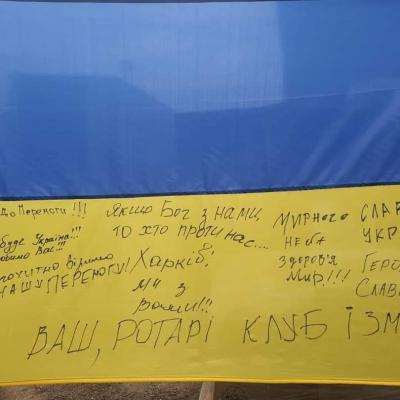 До Перемоги!!!
буде Україна!!!
Вас!!!
віримо
НАШУ ПЕРЕМОГУ!
ЯКЩО БОГ З НАМИ
ТО ХТО ПРОТИ НАС...
Харків!
ми з
Вами!!!
Мирного
неба
Здоров'я
Мир!!!
СЛАВ
УКР
ГЕРО
СЛАВ
ВАШ, РОТАРІ КЛУБ ІЗМ